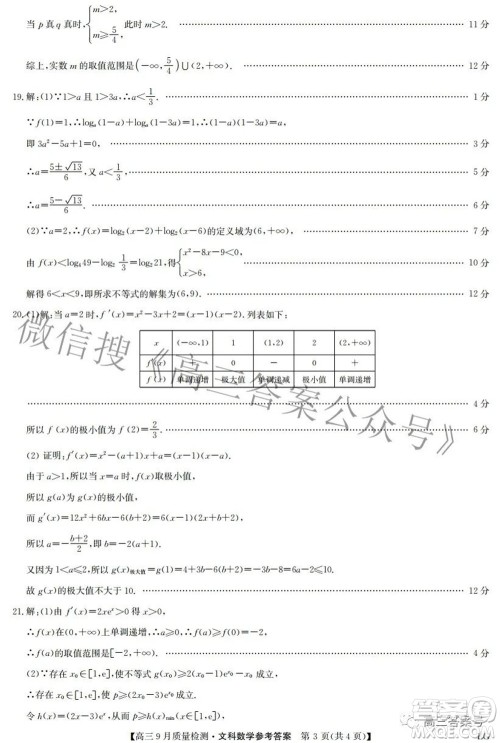 当 p 真 q 真时,{m>2, m≥5/4, ∴m>2. 11 分
综上,实数 m 的取值范围是(-∞,5/4)∪(2,+∞). 12 分
19.解:(1)∵1>a 且 1>3a,∴a<1/3. 1 分
∵f(1)=1,∴logₐ(1-a)+logₐ(1-3a)=1,
即 3a²-5a+1=0, 3 分
∴a=(5±√13)/6,又 a<1/3,
∴a=(5-√13)/6. 5 分
(2)∵a=2,∴f(x)=log₂(x-2)+log₂(x-6)的定义域为(6,+∞), 7 分
由 f(x)<log₄49-log₂ 1/3=log₂21,得{x²-8x-9<0, x>6, 10 分
解得 6<x<9,即所求不等式的解集为(6,9). 12 分
20.(1)解:当 a=2 时,f′(x)=x²-3x+2=(x-1)(x-2).列表如下:
x (-∞,1) 1 (1,2) 2 (2,+∞)
f′(x) + 0 - 0 +
f(x) 单调递增 极大值 单调递减 极小值 单调递增
4 分
所以 f(x)的极小值为 f(2)=2/3. 6 分
(2)证明:f′(x)=x²-(a+1)x+a=(x-1)(x-a).
由于 a>1,所以当 x=a 时,f(x)取极小值,
所以 g(a)为 g(x)的极小值,
而 g′(x)=12x²+6bx-6(b+2)=6(x-1)(2x+b+2),
所以 a=-(b+2)/2,即 b=-2(a+1).
又因为 1<a≤2,所以 g(x)极大值=g(1)=4+3b-6(b+2)=-3b-8=6a-2≤10.
故 g(x)的极大值不大于 10. 12 分
21.解:(1)由 f′(x)=2xeˣ>0 得 x>0,
∴f(x)在(0,+∞)上单调递增,∴a≥0,∴f(a)≥f(0)=-2,
∴f(a)的取值范围是[-2,+∞). 4 分
(2)∵存在 x₀∈[1,e],使不等式 f(x₀)≥2(x₀-1)e^x₀-x₀,
∴存在 x₀∈[1,e],使 p≥(2x₀-3)e^x₀
令 h(x)=(2x-3)eˣ,从而 p≥h(x)min(x∈[1,e]),
《高三9月质量检测·文科数学参考答案 第3页(共4页)》
微信搜《高三答案公众号》
高三答案号